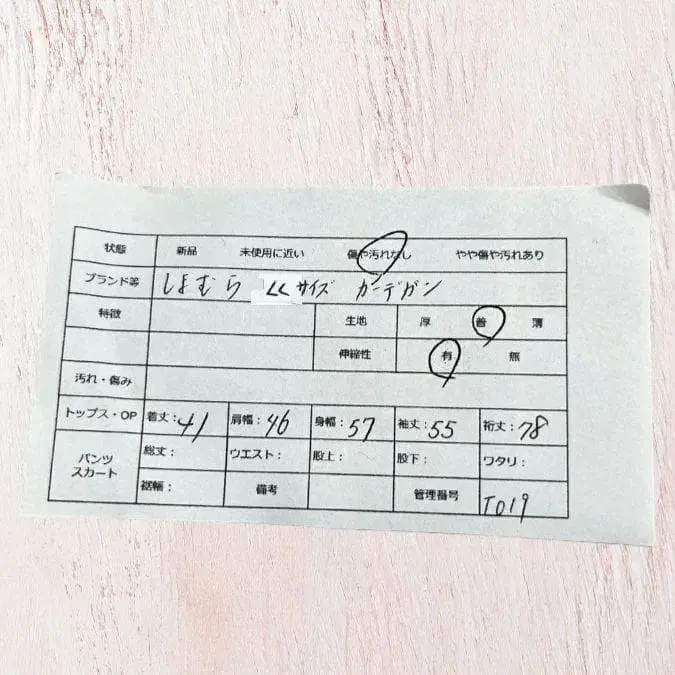 状態 新品 未使用に近い 傷や汚れなし やや傷や汚れあり
ブランド等 しまむら LLサイズ カーデガン
特徴 生地 厚 普 薄
伸縮性 有 無
汚れ・傷み
トップス・OP 着丈:41 肩幅:46 身幅:57 袖丈:55 裄丈:78
パンツ スカート 総丈: ウエスト: 股上: 股下: ワタリ:
裾幅: 備考 管理番号 T019